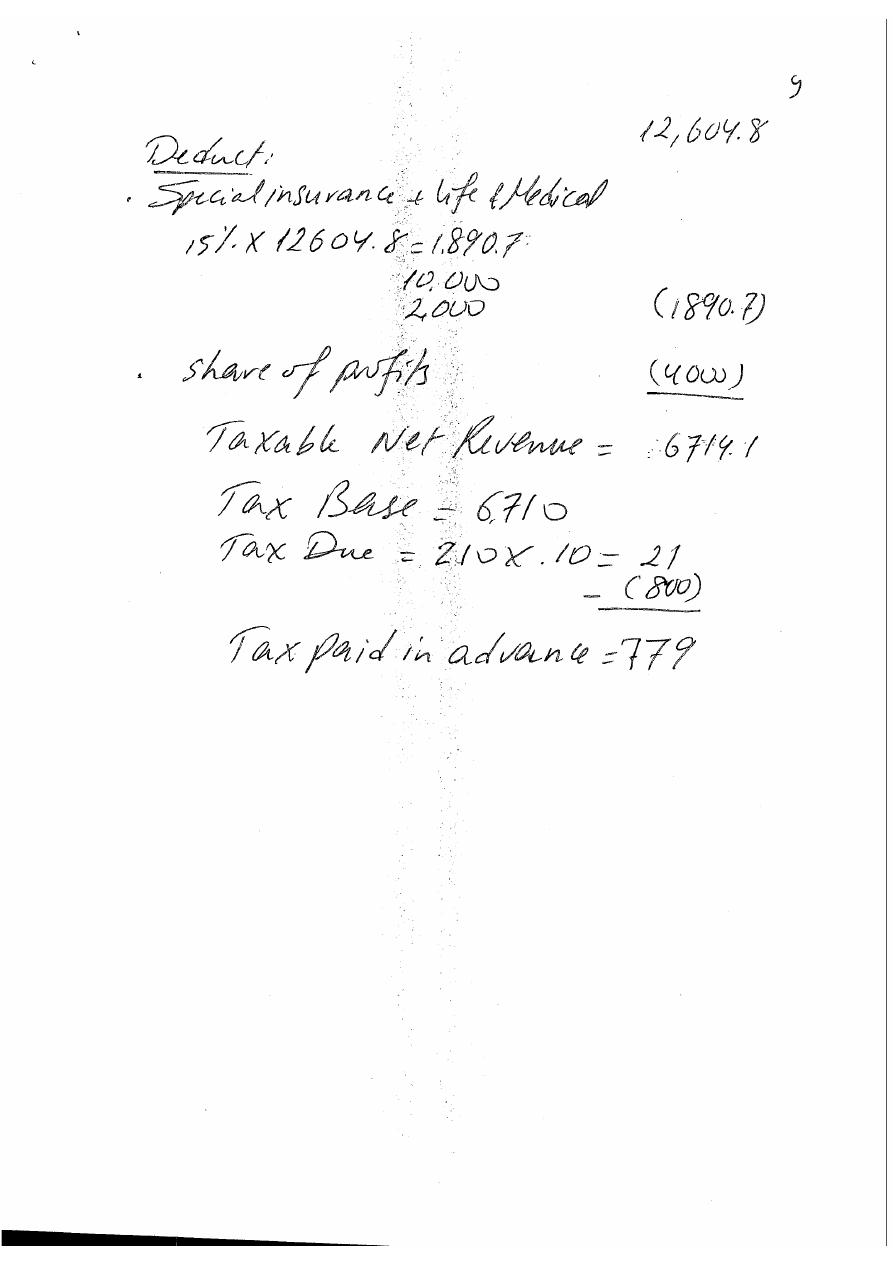 9
12,604.8
Deduct:
. Special insurance + Life & Medical
15% X 12604.8 = 1,890.7
10,000
2,000 (1890.7)
. share of profits (4000)
Taxable Net Revenue = 6714.1
Tax Base = 6,710
Tax Due = 210 X .10 = 21
- (800)
Tax paid in advance = 779